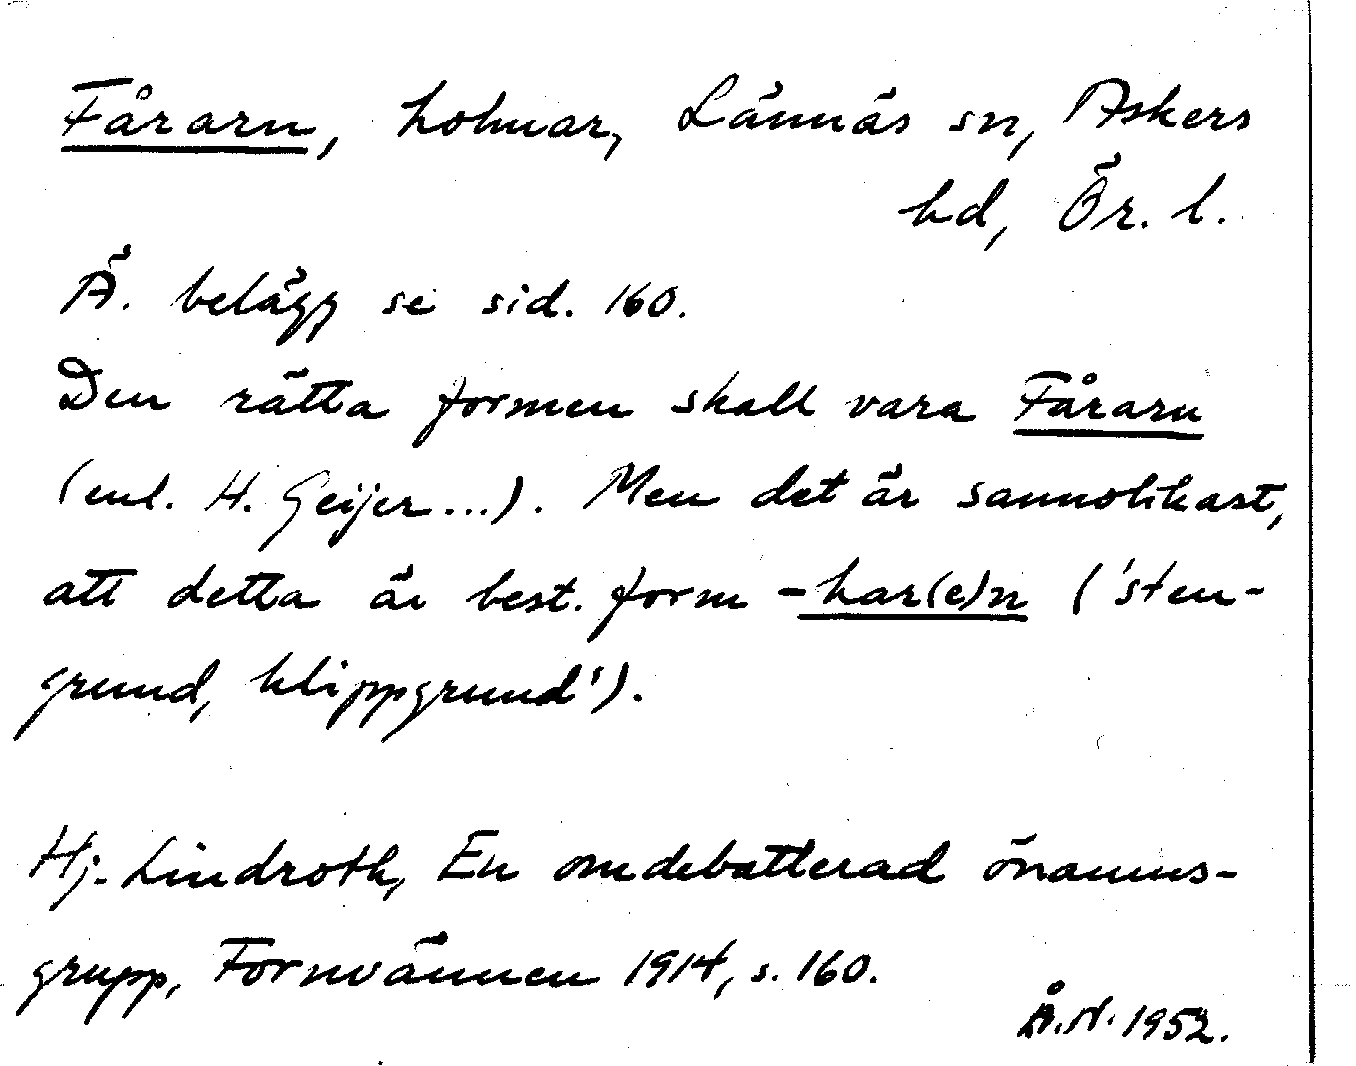 Fårarn, holmar, Lännäs sn, Askers
hd, Ör. l.
Ä. belägg se sid. 160.
Den rätta formen skall vara Fårarn
(enl. H. Geijer...). Men det är sannolikast,
att detta är best. form -har(e)n ('sten-
grund, klippgrund').
Hj. Lindroth, En omdebatterad önamns-
grupp, Fornvännen 1914, s. 160.
Å.N. 1952.